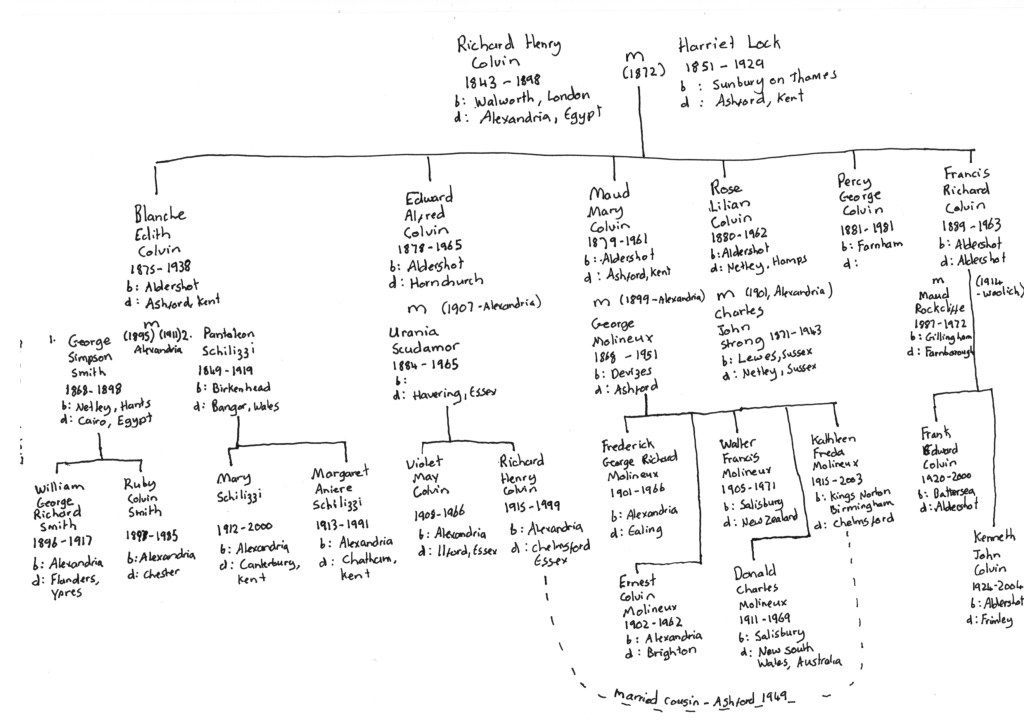 Richard Henry
Colvin
1843 - 1898
b: Walworth, London
d: Alexandria, Egypt
m
(1872)
Harriet Lock
1851 - 1929
b : Sunbury on Thames
d : Ashford, Kent
Blanche
Edith
Colvin
1875-1938
b: Aldershot
d: Ashford, Kent
Edward
Alfred
Colvin
1878-1965
b: Aldershot
d: Hornchurch
Maud
Mary
Colvin
1879-1961
b: Aldershot
d: Ashford, Kent
Rose
Lilian
Colvin
1880-1962
b: Aldershot
d: Netley, Hamps
Percy
George
Colvin
1881-1981
b: Farnham
d:
Francis
Richard
Colvin
1889-1963
b: Aldershot
d: Aldershot
m
(1895) (1911)
Alexandria
1. George
Simpson
Smith
1868-1898
b: Netley, Hants
d: Cairo, Egypt
2. Pantaleon
Schilizzi
1849-1919
b: Birkenhead
d: Bangor, Wales
m (1907-Alexandria)
Urania
Scudamor
1884-1965
b:
d: Havering, Essex
m (1899-Alexandria)
George
Molineux
1868 - 1951
b: Devizes
d: Ashford
m (1901, Alexandria)
Charles
John
Strong 1871-1943
b: Lewes, Sussex
d: Netley, Sussex
m (1914
-Woolich)
Maud
Rockcliffe
1887-1972
b: Gillingham
d: Farnborough
William
George
Richard
Smith
1896-1917
b: Alexandria
d: Flanders,
Ypres
Ruby
Colvin
Smith
b: Alexandria
d: Chester
Mary
Schilizzi
1912-2000
b: Alexandria
d: Canterbury,
Kent
Margaret
Aniere
Schilizzi
1913-1991
b: Alexandria
d: Chatham,
Kent
Violet
May
Colvin
1908-1966
b: Alexandria
d: Ilford, Essex
Richard
Henry
Colvin
1915-1999
b: Alexandria
d: Chelmsford
Essex
Frederick
George Richard
Molineux
1901-1966
b: Alexandria
d: Ealing
Walter
Francis
Molineux
1905-1971
b: Salisbury
d: New Zealand
Kathleen
Freda
Molineux
1915-2003
b: Kings Norton
Birmingham
d: Chelmsford
Frank
Edward
Colvin
1920-2000
b: Battersea
d: Aldershot
Ernest
Colvin
Molineux
1902-1962
b: Alexandria
d: Brighton
Donald
Charles
Molineux
1911-1969
b: Salisbury
d: New South
Wales, Australia
Kenneth
John
Colvin
1924-2004
b: Aldershot
d: Frimley
Married cousin - Ashford 1949